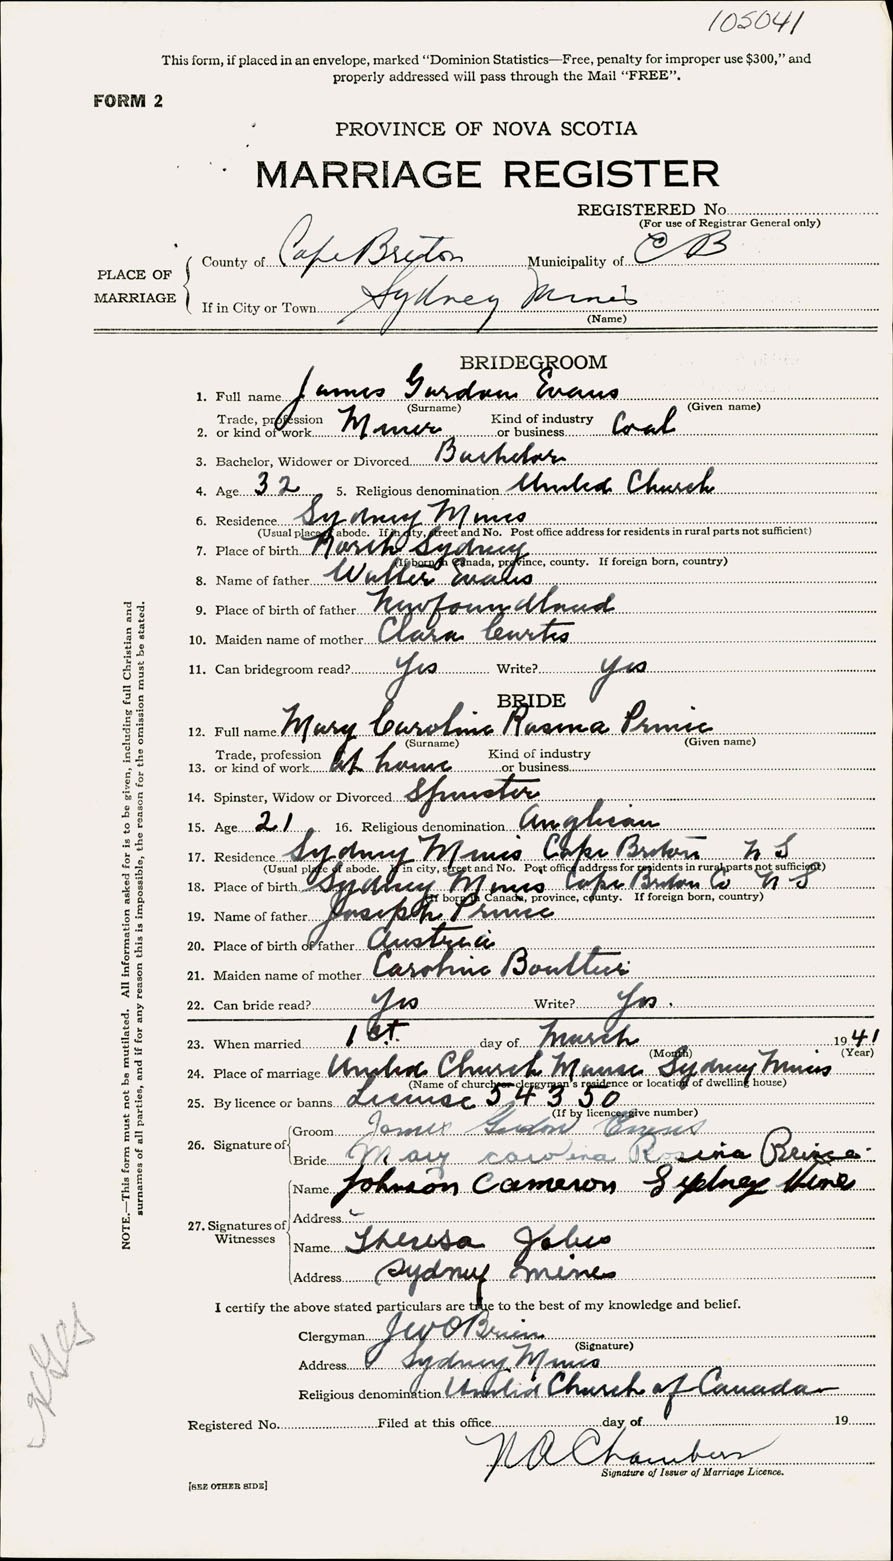 105041
This form, if placed in an envelope, marked "Dominion Statistics—Free, penalty for improper use $300," and
properly addressed will pass through the Mail "FREE".
FORM 2
PROVINCE OF NOVA SCOTIA
MARRIAGE REGISTER
REGISTERED No.
(For use of Registrar General only)
PLACE OF MARRIAGE
County of Cape Breton Municipality of C B
If in City or Town Sydney Mines
(Name)
BRIDEGROOM
1. Full name James Gordon Evans
(Surname) (Given name)
Trade, profession Kind of industry
2. or kind of work Miner or business Coal
3. Bachelor, Widower or Divorced Bachelor
4. Age 32 5. Religious denomination United Church
6. Residence Sydney Mines
(Usual place of abode. If in city, street and No. Post office address for residents in rural parts not sufficient)
7. Place of birth North Sydney
(If born in Canada, province, county. If foreign born, country)
8. Name of father Walter Evans
9. Place of birth of father Newfoundland
10. Maiden name of mother Clara Curtis
11. Can bridegroom read? Yes Write? Yes
BRIDE
12. Full name Mary Caroline Rosina Prince
(Surname) (Given name)
Trade, profession Kind of industry
13. or kind of work At home or business
14. Spinster, Widow or Divorced Spinster
15. Age 21 16. Religious denomination Anglican
17. Residence Sydney Mines Cape Breton N S
(Usual place of abode. If in city, street and No. Post office address for residents in rural parts not sufficient)
18. Place of birth Sydney Mines Cape Breton Co N S
(If born in Canada, province, county. If foreign born, country)
19. Name of father Joseph Prince
20. Place of birth of father Austria
21. Maiden name of mother Caroline
22. Can bride read? Yes Write? Yes.
23. When married 1st. day of March 1941
(Month) (Year)
24. Place of marriage United Church Manse Sydney Mines
(Name of church or clergyman's residence or location of dwelling house)
25. By licence or banns License 54350
(If by licence, give number)
26. Signature of
Groom James Gordon Evans
Bride Mary Rosina Prince
27. Signatures of Witnesses
Name Johnson Cameron Sydney Mines
Address
Name Theresa
Address Sydney Mines
I certify the above stated particulars are true to the best of my knowledge and belief.
Clergyman J W O'Brien
(Signature)
Address Sydney Mines
Religious denomination United Church of Canada
Registered No. Filed at this office day of 19
N A Chambers
Signature of Issuer of Marriage Licence.
[SEE OTHER SIDE]
NOTE.—This form must not be mutilated. All information asked for is to be given, including full Christian and
surnames of all parties, and if for any reason this is impossible, the reason for the omission must be stated.